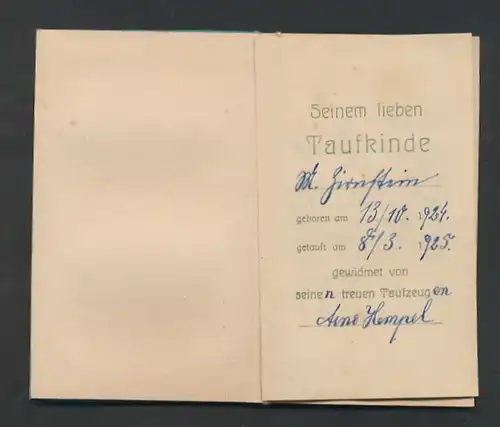 Seinem lieben
Taufkinde
M. Zirnstein
geboren am 13/10. 1924.
getauft am 8/3. 1925.
gewidmet von
seinen treuen Taufzeugen
Arno Hempel